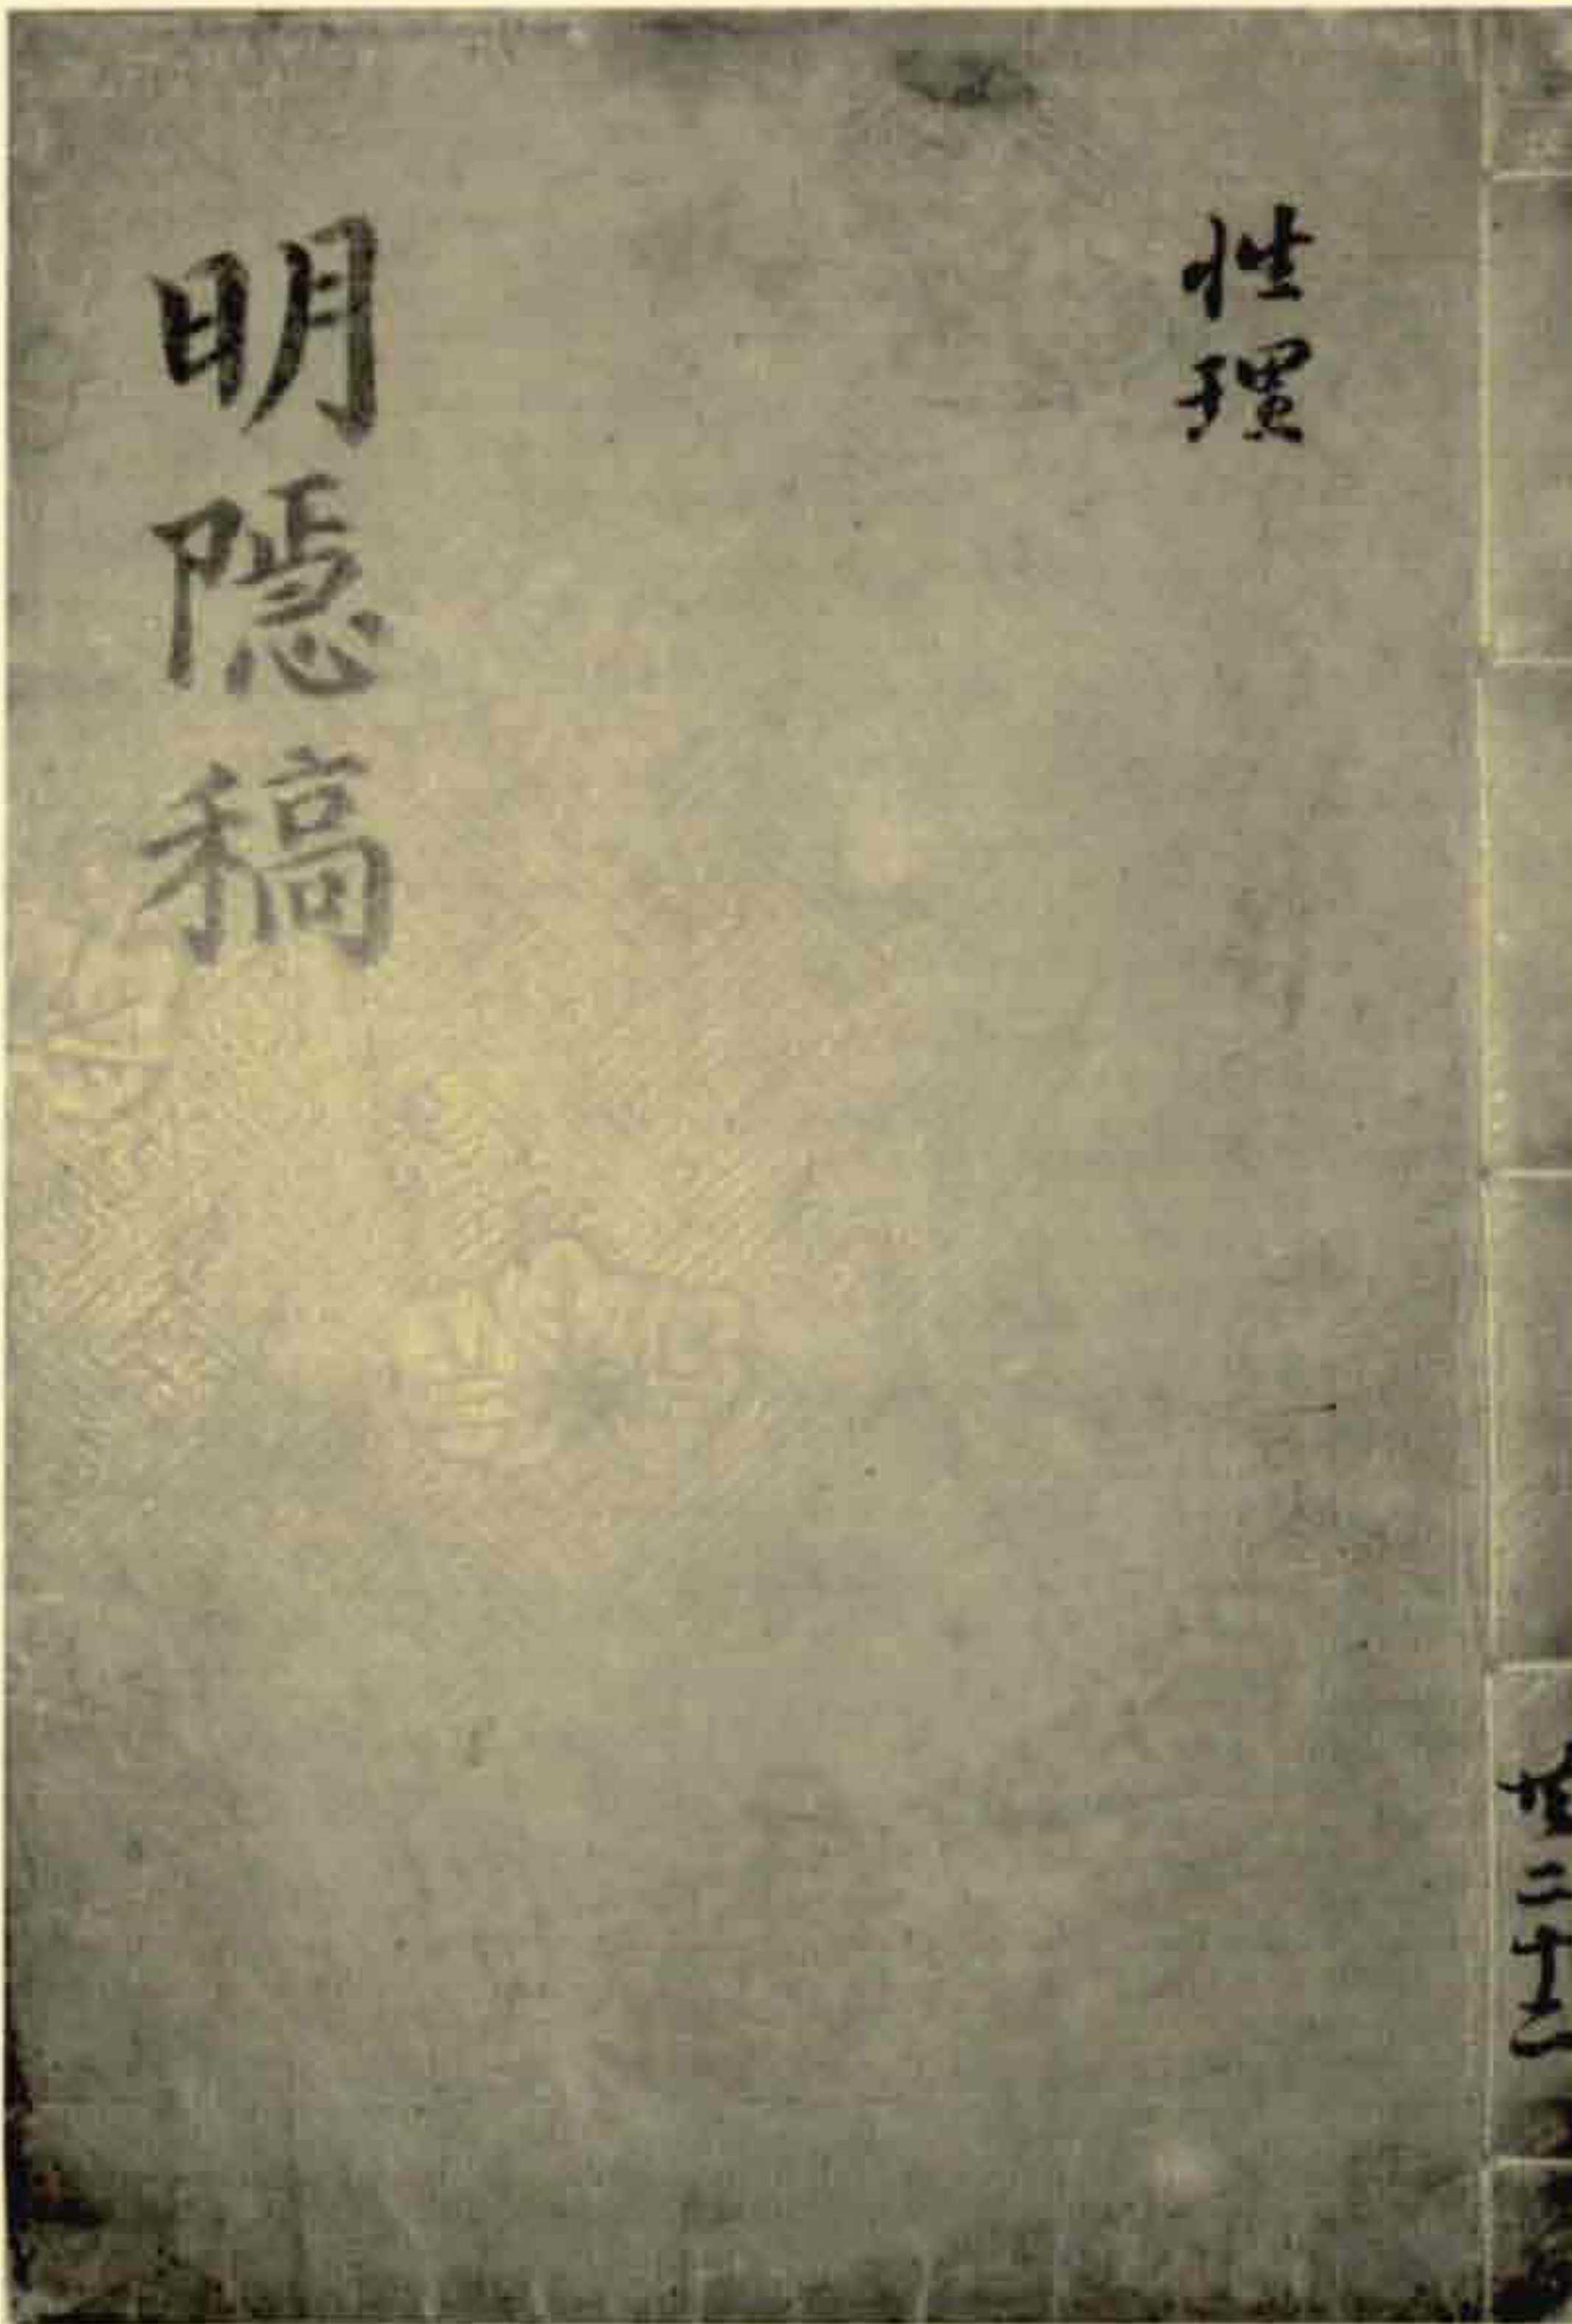 性理
明隱稿
共二十